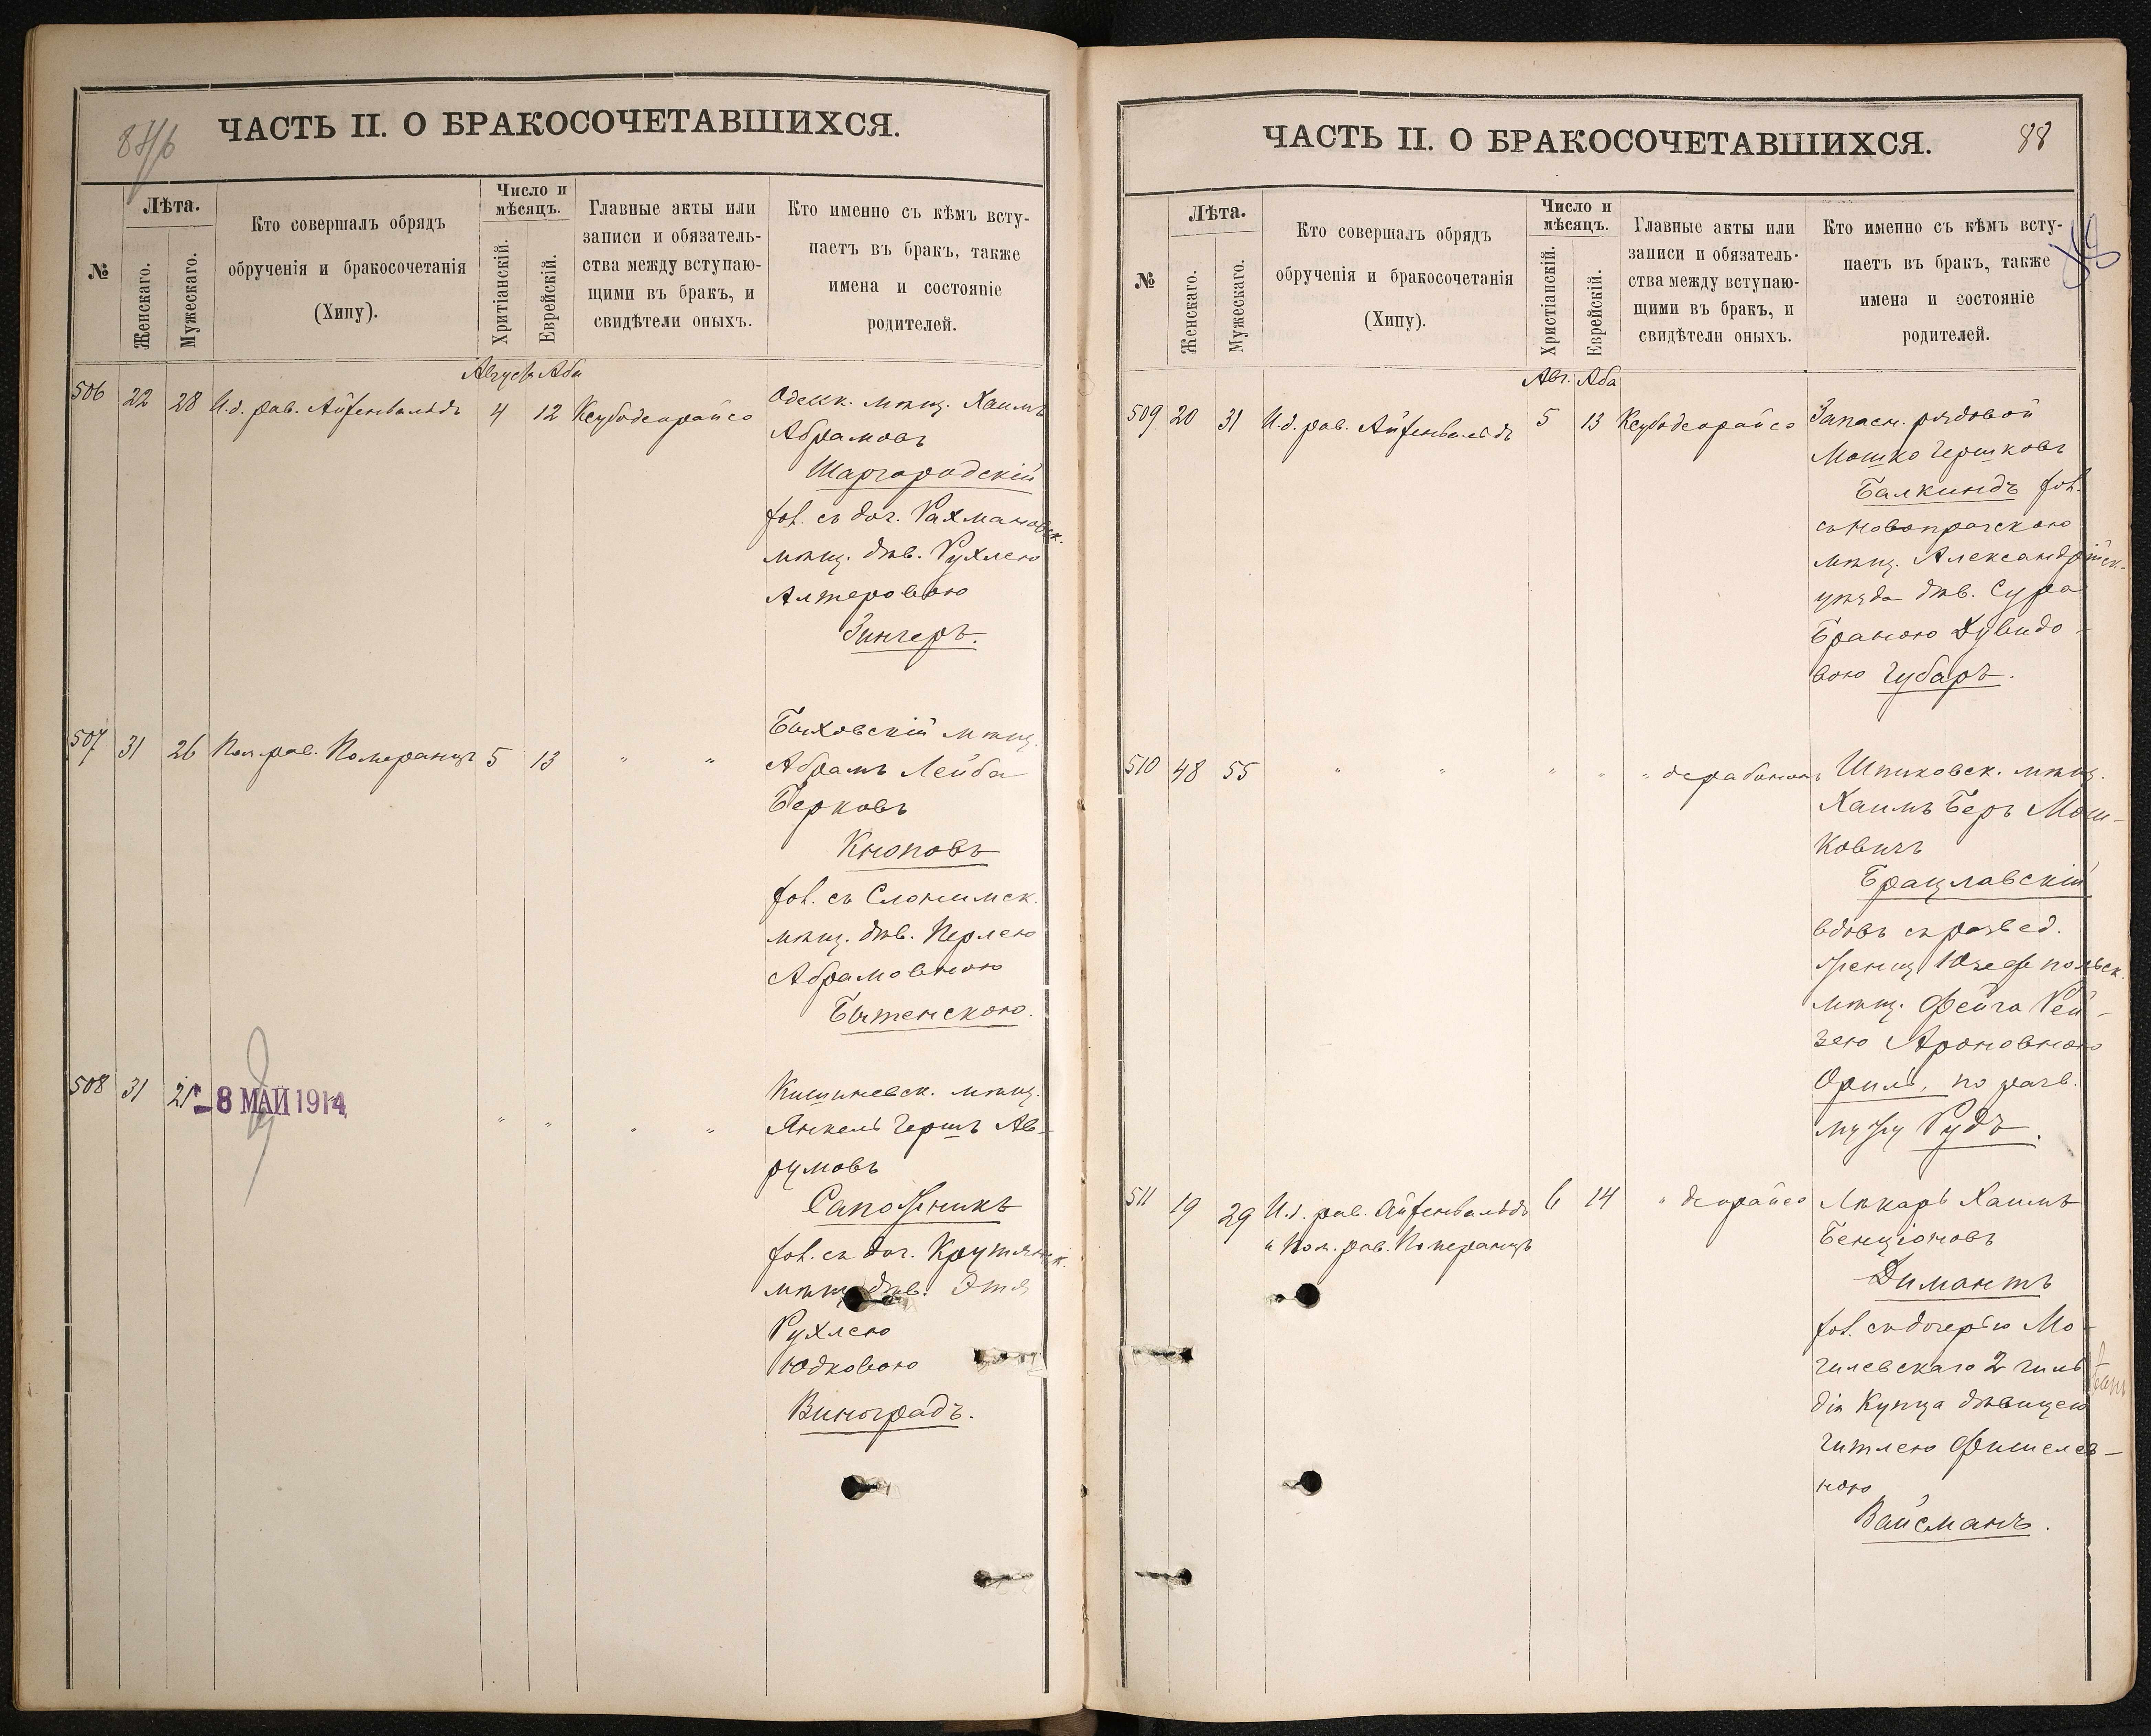 87/б
ЧАСТЬ II. О БРАКОСОЧЕТАВШИХСЯ.
№
Лѣта.
Женскаго.
Мужескаго.
Кто совершалъ обрядъ
обрученія и бракосочетанія
(Хипу).
Число и
мѣсяцъ.
Хритіанскій.
Еврейскій.
Главные акты или
записи и обязатель-
ства между вступаю-
щими въ брак, и
свидѣтели оныхъ.
Кто именно съ кѣмъ всту-
паетъ въ брак, также
имена и состояніе
родителей.
Августъ Аба
506 22 28 И.д. рав. Айзенвальдъ 4 12 Ксубодеорайсо
Одесск. мѣщ. Хаимъ
Абрамовъ
Шаргородскій
хол. съ доч. Рахмановск.
мѣщ. дѣв. Рухлею
Алтеровою
Зингеръ.
507 31 26 Пом. рав. Померанцъ 5 13 " "
Быховскій мѣщ.
Абрамъ Лейба
Берковъ
Кноповъ
хол. съ Слонимск.
мѣщ. дѣв. Перлею
Абрамовною
Бытенскою.
508 31 21 - 8 МАЙ 1914 " " " "
Кишиневск. мѣщ.
Янкель Гершъ Ав-
румовъ
Сапожникъ
хол. съ доч. Крутянск.
мѣщ. дѣв. Этя
Рухлею
Юдковою
Виноградъ.
ЧАСТЬ II. О БРАКОСОЧЕТАВШИХСЯ.
88
№
Лѣта.
Женскаго.
Мужескаго.
Кто совершалъ обрядъ
обрученія и бракосочетанія
(Хипу).
Число и
мѣсяцъ.
Христіанскій.
Еврейскій.
Главные акты или
записи и обязатель-
ства между вступаю-
щими въ брак, и
свидѣтели оныхъ.
Кто именно съ кѣмъ всту-
паетъ въ брак, также
имена и состояніе
родителей.
Авг. Аба
509 20 31 И.д. рав. Айзенвальдъ 5 13 Ксубодеорайсо
Запасн. рядовой
Мошко Гершковъ
Балкиндъ хол.
съ Новопражскою
мѣщ. Александрійск-
уѣзда дѣв. Сура
Бранею Дувидо-
вою Губаръ.
510 48 55 " " " " " дерабонон
Шпиковск. мѣщ.
Хаимъ Беръ Мош-
ковичъ
Брацлавскій
вдовъ съ развед.
женщ. Юзефпольск.
мѣщ. Фейга Рей-
зею Ароновною
Орилъ, по разв.
мужу Рудъ.
511 19 29 И.д. рав. Айзенвальдъ 6 14 " деорайсо
и Пом. рав. Померанцъ
Лѣкарь Хаимъ
Бенціоновъ
Димантъ
хол. съ дочерью Мо-
гилевскаго 2 гиль-
діи Купца дѣвицею
Гитлею Фишелев-
ною
Вайсманъ.